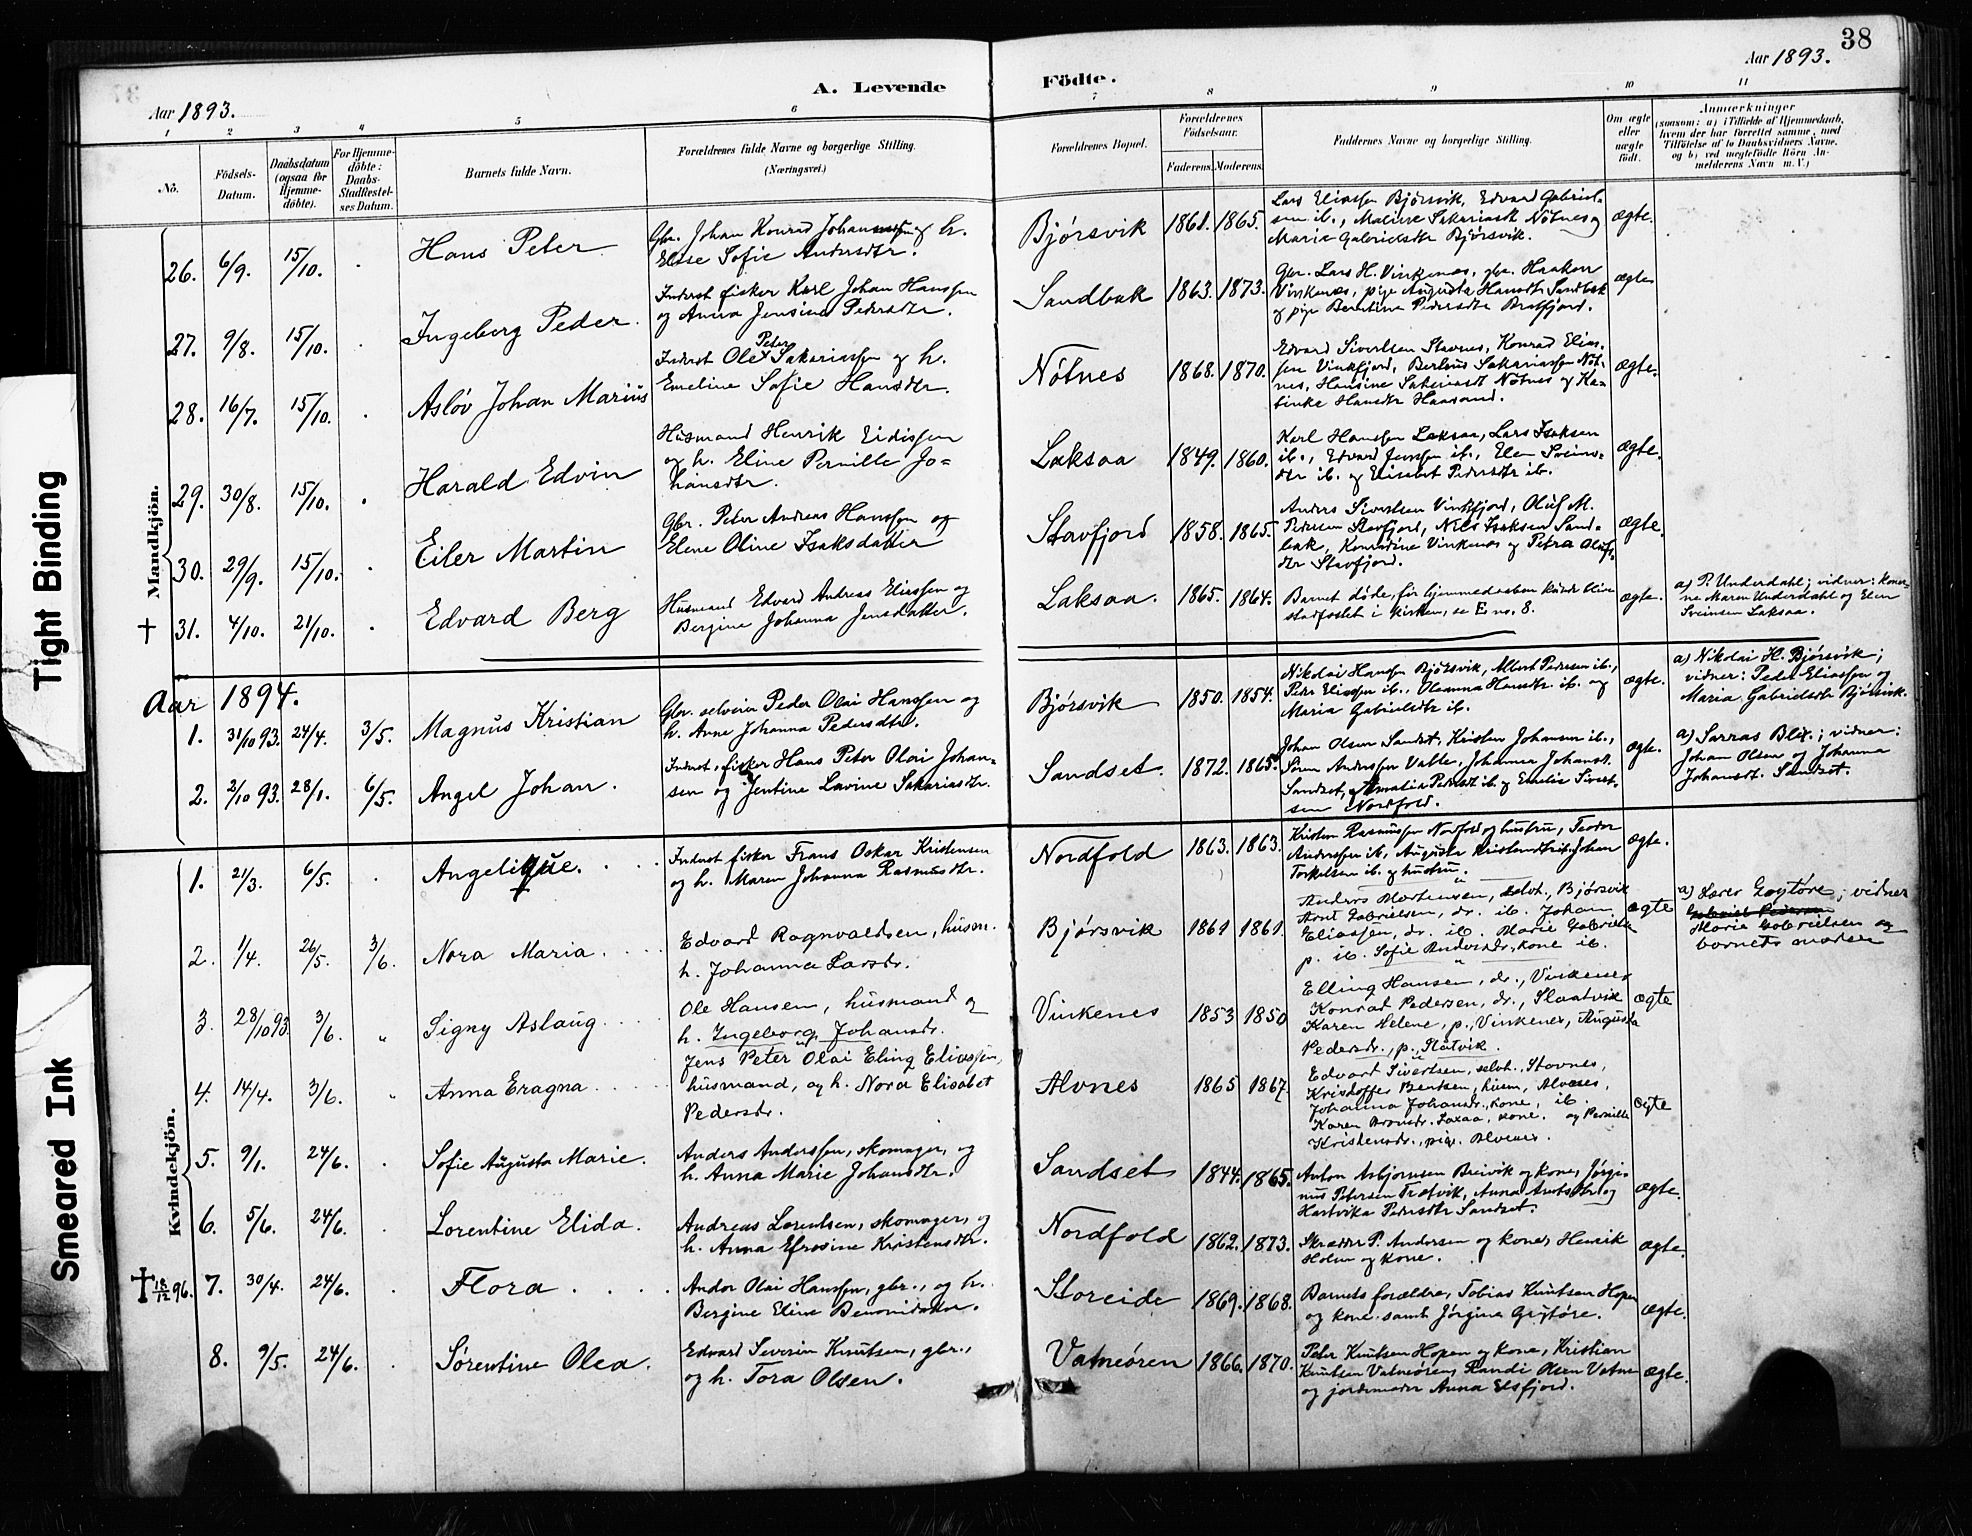 38
Aar 1893.
A. Levende
Födte.
Aar 1893.
1 2 3 4 5 6 7 8 9 10 11
No.
Födsels-
Datum.
Daabsdatum
(ogsaa for
Hjemme-
döbte).
For Hjemme-
döbte:
Daabs-
Stadfæstel-
ses Datum.
Barnets fulde Navn.
Forældrenes fulde Navne og borgerlige Stilling.
(Næringsvei.)
Forældrenes Bopæl.
Forældrenes
Födselsaar.
Faderens. Moderens.
Faddernes Navne og borgerlige Stilling.
Om ægte
eller
uægte
født.
Anmærkninger
(saasom: a) i Tilfælde af Hjemmedaab,
hvem der har forrettet samme, med
Tilføielse af to Daabsvidners Navne,
og b) ved uegtefødte Börn An-
melderens Navn m. V.)
Mandkjön.
26. 6/9. 15/10. Hans Peter
Gbr. Johan Konrad Johanssen og h.
Else Sofie Andersdtr.
Bjørsvik 1861. 1865.
Lars Eliassen Bjørsvik, Edvard Gabriel-
sen ib., Maliene Sakariasdt Nøtnes og
Maria Gabrielsdtr Bjørsvik.
ægte.
27. 9/8. 15/10. Ingeborg Peder.
Inderst fisker Karl Johan Hanssen
og Anna Jensine Pedersdtr.
Sandbak 1863. 1873.
Gbr. Lars H. Vinkenes, gbr. Haakon
Vinkenæs, pige Augusta Hansdt Sandbak
og pige Berntine Pedersdtr Bratfjord.
ægte
28. 16/7. 15/10. Asløv Johan Marius
Peter
Inderst Ole Sakariassen og h.
Emeline Sofie Hansdtr.
Nøtnes 1868. 1870.
Edvard Sivertsen Stavnes, Konrad Elias-
sen Vinkfjord, Berteus Sakariassen Nøt-
nes, Hansine Sakariasdt Nøtnes og Ka-
tinke Hansdtr Haarand.
ægte.
29. 30/8. 15/10. Harald Edvin
Husmand Henrik Eidissen
og h. Eline Pernille Jo-
hansdtr.
Laksaa 1849. 1860.
Karl Hanssen Laksaa, Lars Isaksen
ib., Edvard Jenssen ib., Elen Sveins-
dtr ib. og Elisabet Pedersdtr ib.
ægte.
30. 29/9. 15/10. Eiler Martin
Gbr. Peter Andreas Hanssen og
Elene Oline Isaksdatter
Stavfjord 1858. 1865.
Anders Sivertsen Vinkfjord, Oluf M.
Pedersen Stavfjord, Nils Isaksen Sand-
bak, Konradine Vinkenæs og Petra Olufs-
dtr Stavfjord.
ægte.
† 31. 4/10. 21/10. Edvard Berg
Husmand Edvard Andreas Eliassen og
Bergine Johanna Jensdatter.
Laksaa. 1865. 1864.
Barnet døde, før hjemmedaaben kunde blive
stadfæstet i kirken, se E no. 8.
ægte.
a) P. Underdahl; vidner: kone-
ne Maren Underdahl og Elen
Sveinsen Laksaa.
Aar 1894.
1. 31/10 93. 24/4. 3/5. Magnus Kristian
Gbr. selveier Peder Olai Hanssen og
h. Anne Johanna Pedersdtr.
Bjørsvik 1850. 1854.
Nikolai Hanssen Bjørsvik, Albert Pedersen ib.,
Peder Eliassen ib., Oleanna Hansdtr ib. og
Maria Gabrielsdtr ib.
ægte.
a) Nikolai H. Bjørsvik;
vidner: Peder Eliassen og
Maria Gabrielsdtr Bjørsvik.
2. 2/10 93. 28/1. 6/5. Angel Johan.
Inderst, fisker Hans Peter Olai Johan-
sen og Jentine Lavine Sakariasdtr.
Sandset. 1872. 1865.
Johan Olsen Sandset, Kristen Johansen ib.,
Søren Anderssen Valle, Johanna Johansdt.
Sandset, Amalia Pedersdt ib. og Emelie Sivert-
sen Nordfold.
ægte.
a) Sarras Blix; vidner:
Johan Olsen og Johanna
Johansdt. Sandset.
Kvindekjön.
1. 21/3. 6/5. Angelique.
Inderst fisker Frans Oskar Kristensen
og h. Maren Johanna Rasmusdtr.
Nordfold 1863. 1863.
Kristen Rasmussen Nordfold og hustru, Teodor
Anderssen ib., Augusta Kristensdtr ib. Johan
Torkelsen ib. og hustru.
ægte.
2. 1/4. 26/5. 3/6. Nora Maria.
Edvard Ragnvaldsen, husm.
h. Johanna Larsdr.
Bjørsvik 1861 1861.
Anders Mortensen, selvt., Bjørsvik
Arnt Gabrielsen, dr. ib. Johan
Eliassen, dr. ib. Marie Gabrielsd
p. ib. Sofie Andersdr, kone ib.
ægte
a) Lærer Grytøre; vidner
Marie Gabrielsen og
barnets moder
3. 28/10 93 3/6. " Signy Aslaug.
Ole Hansen, husmand og
h. Ingeborg Johansdr.
Vinkenes 1853 1850
Elling Hansen, dr., Vinkenes
Konrad Pedersen, dr., Slaatvik
Karen Helene, p., Vinkenes, Augusta
Pedersdr., p., Slåtvik.
ægte
4. 14/4. 3/6. " Anna Eragna
Jens Peter Olai Eling Eliassen,
husmand, og h. Nora Elisabet
Pedersdr.
Alvnes 1865 1867.
Edvard Sivertsen, selvt., Stavnes,
Kristoffer Bentsen, husm, Alvnes,
Johanna Johansdr., kone, ib.
Karen Aronsdr. Laxaa, kone. og Pernille
Kristensdr., pige. Alvenes.
ægte
5. 9/1. 24/6. Sofie Augusta Marie.
Anders Anderssen, skomager, og
h. Anna Marie Johansdtr.
Sandset 1844. 1865.
Anton Asbjørnsen Breivik og kone, Jørgi-
nus Petersen Træfvik, Anna Arntsdtr og
Hartvika Pedersdtr Sandset.
ægte.
6. 5/6. 24/6. Lorentine Elida.
Andreas Lorentsen, skomager, og
h. Anna Efrosine Kristensdtr.
Nordfold 1862. 1873.
Skrædder P. Andersen og kone, Henrik
Holm og kone.
ægte.
† 18/12 96. 7. 30/4. 24/6. Flora
Andor Olai Hanssen, gbr., og h.
Bergine Eline Benonisdtr.
Storeide 1869. 1868.
Barnets forældre, Tobias Knutsen Hopen
og kone samt Jørgine Grytøre.
ægte.
8. 9/5. 24/6. Sørentine Olea.
Edvard Severin Knutsen, gbr.,
og h. Tora Olsen.
Vatneøren 1866. 1870.
Peter Knutsen Hopen og kone, Kristian
Knutsen Vatneøren, Randi Olsen Vatne
og jordemoder Anna Elsfjord.
ægte.
Tight Binding
Smeared Ink